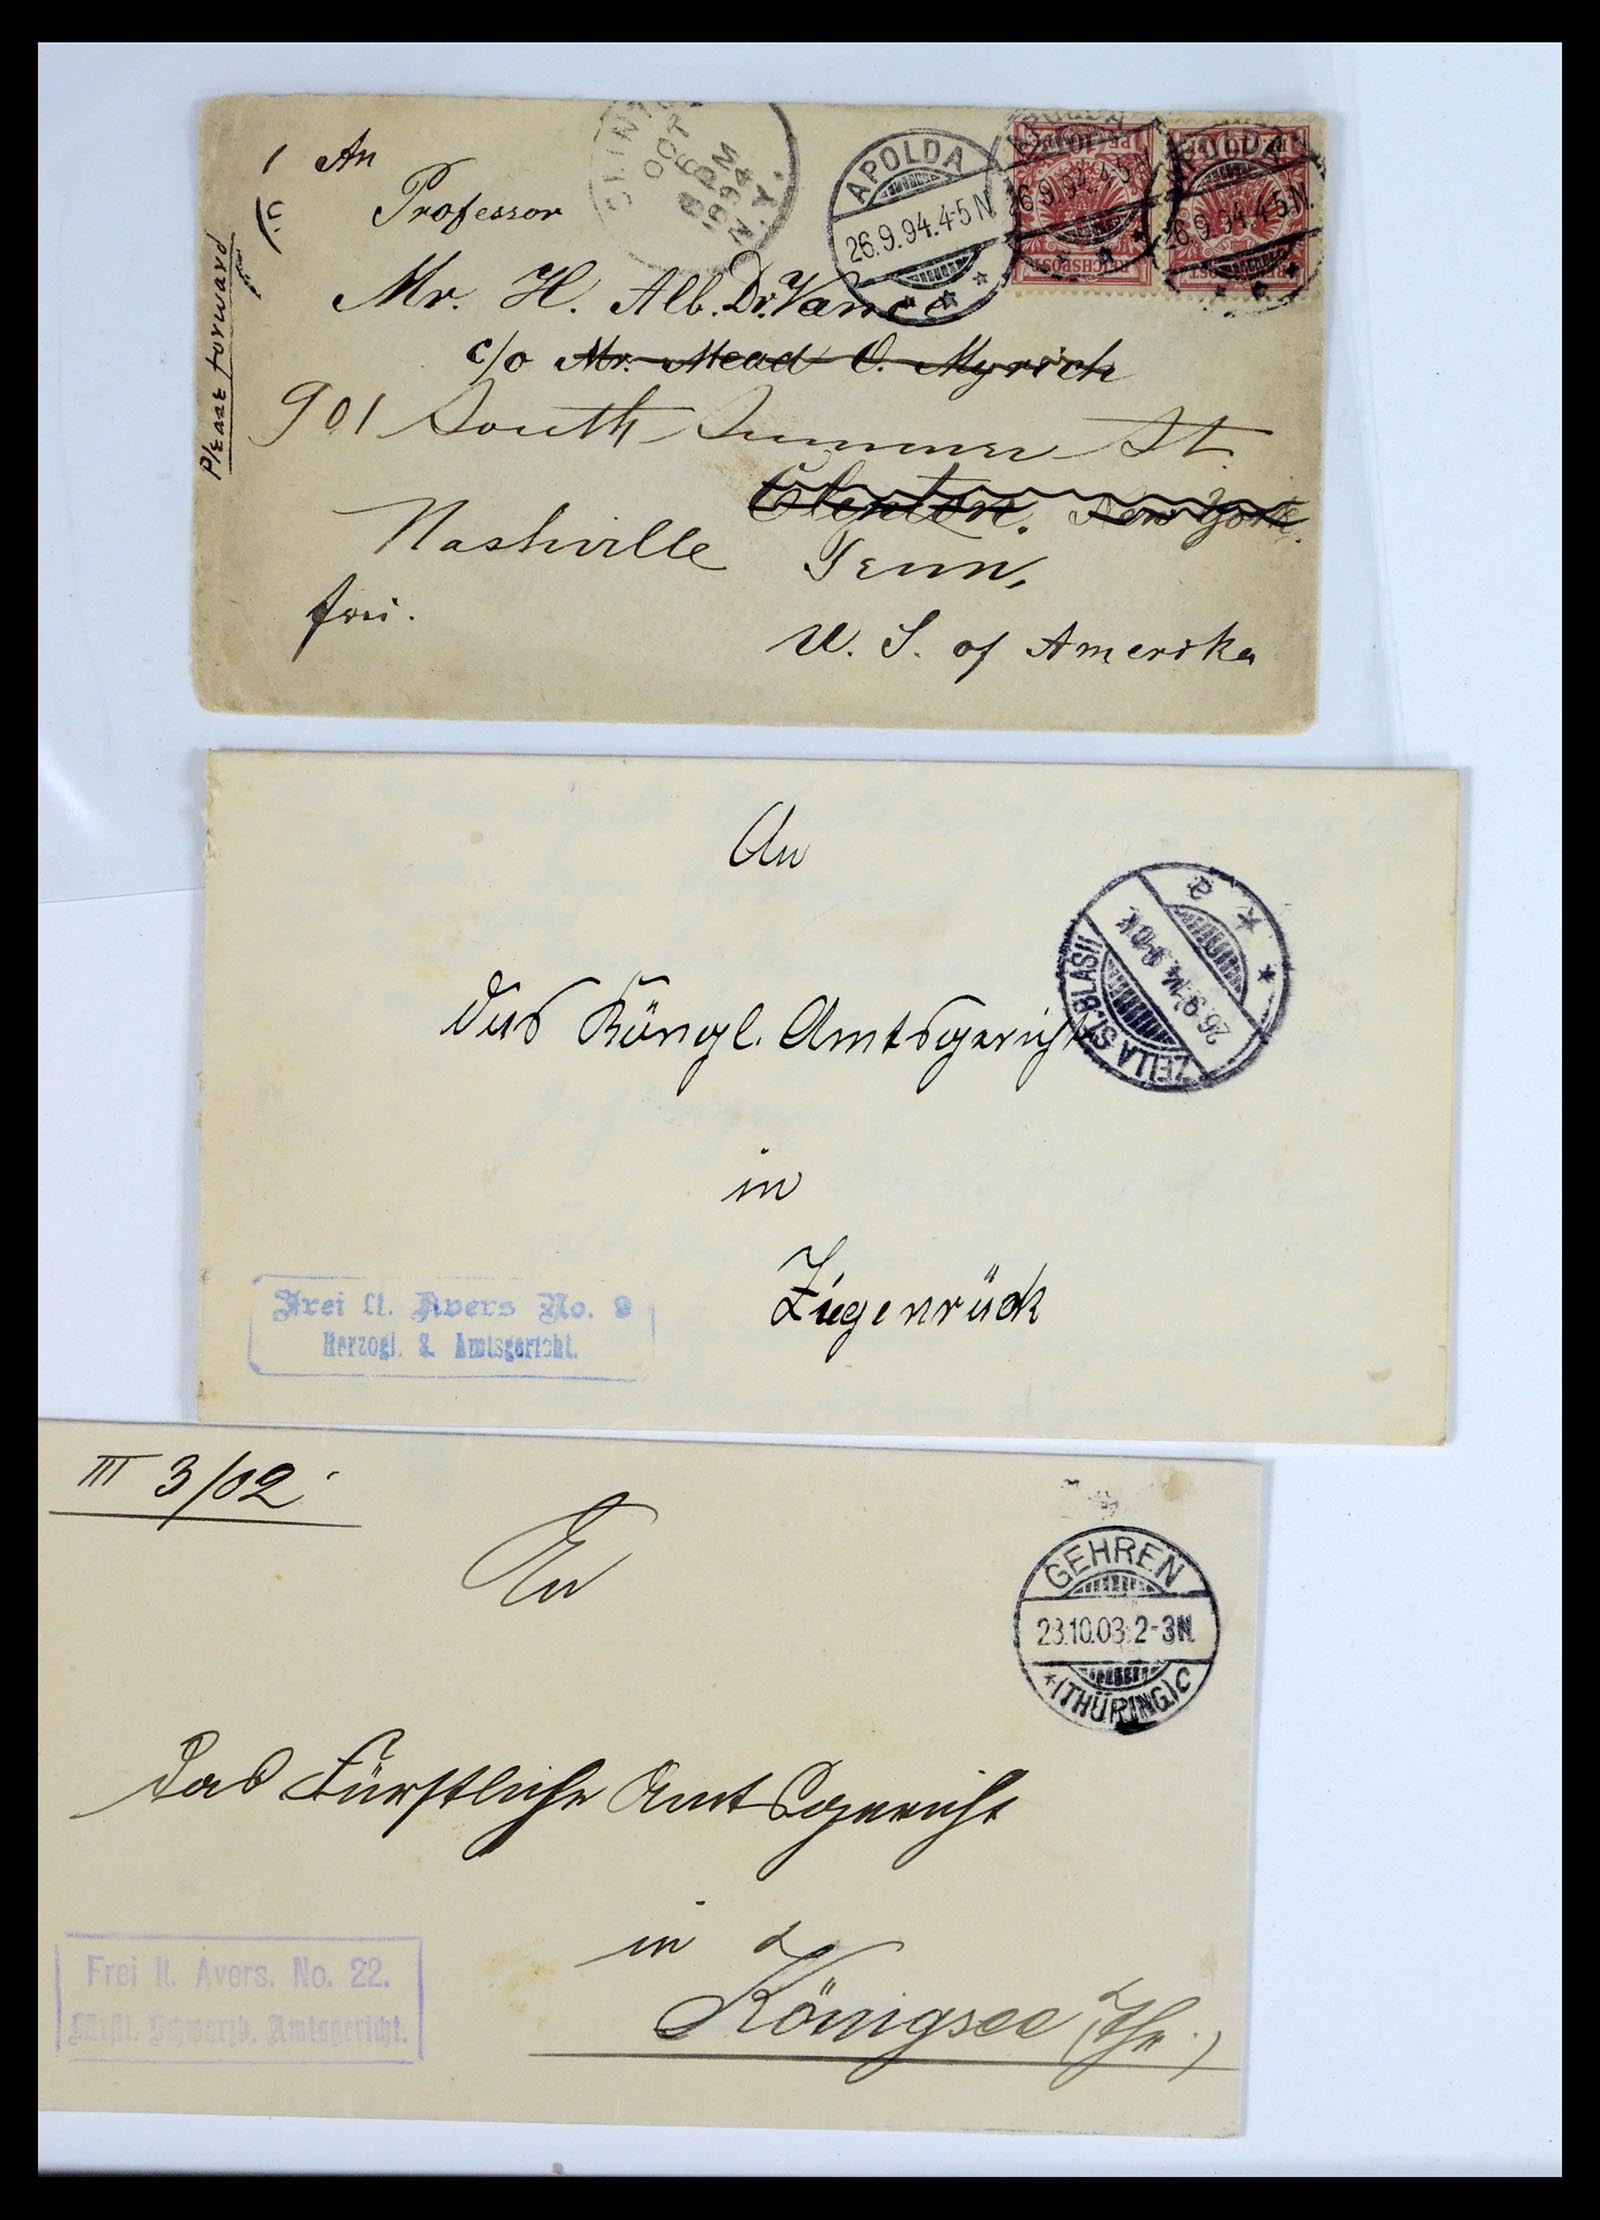 An
Professor
Mr. H. Alb. Dr. Vance
c/o Mr. Mead O. Myrich
901 South Summer St.
Clinton. New York.
Nashville Tenn,
frei.
U. S. of Amerika
Please forward
CLINTO
OCT
6
8 PM
1894
N.Y.
APOLDA
26.9.94.4-5N
APOLDA
26.9.94.4-5N
APOLDA
26.9.94.4-5N.
REICHSPOST
REICHSPOST
An
das Königl. Amtsgericht
in
Ziegenrück
ZELLA ST. BLASII
Frei lt. Avers No. 9
Herzogl. S. Amtsgericht.
III 3/02
An
das Fürstliche Amtsgericht
in
Königsee (Thr.)
GEHREN
23.10.03.2-3N.
*(THÜRING.)C
Frei lt. Avers. No. 22.
Fürstl. Schwarzb. Amtsgericht.